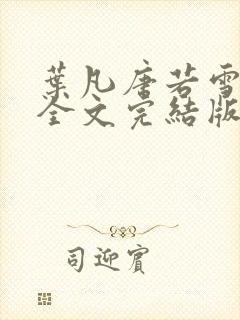 葉凡唐若雪
全文完結版
司迎賓